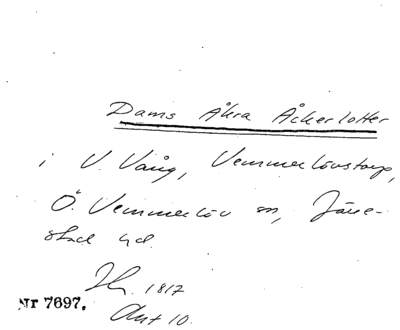 Dams Åkra Åckerlotter
i V. Vång, Vemmerlövstorp,
Ö. Vemmerlöv sn, Järre-
stad hd.
1817
Nr 7697.
Akt 10.